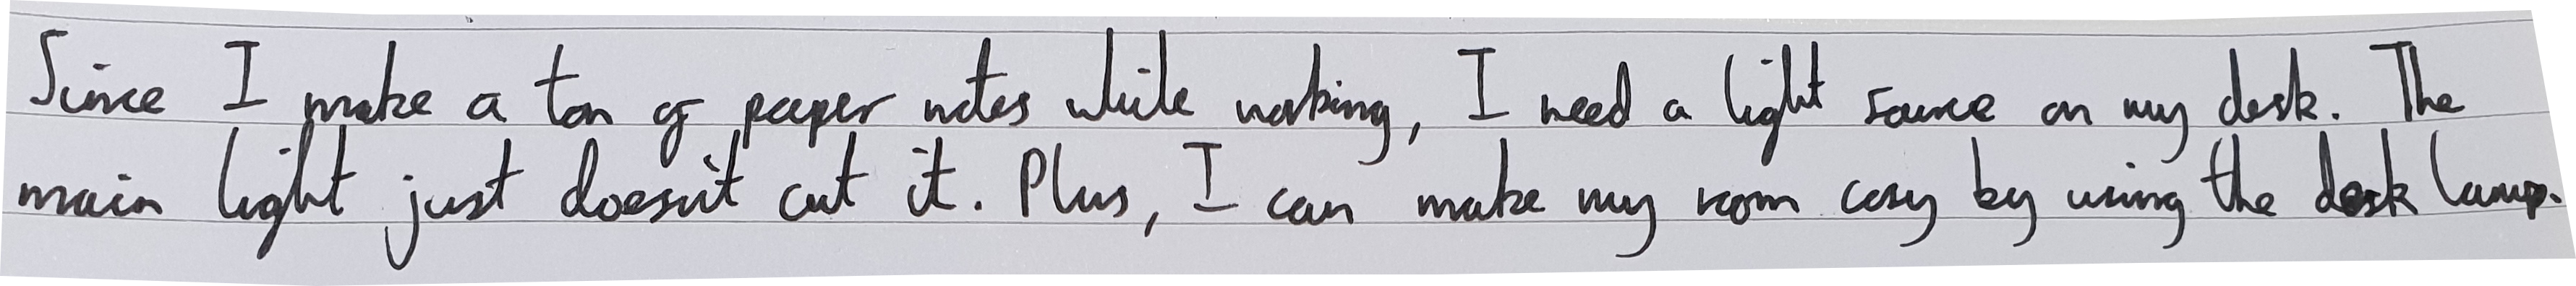 Since I make a ton of paper notes while working, I need a light source on my desk. The
main light just doesn't cut it. Plus, I can make my room cosy by using the desk lamp.